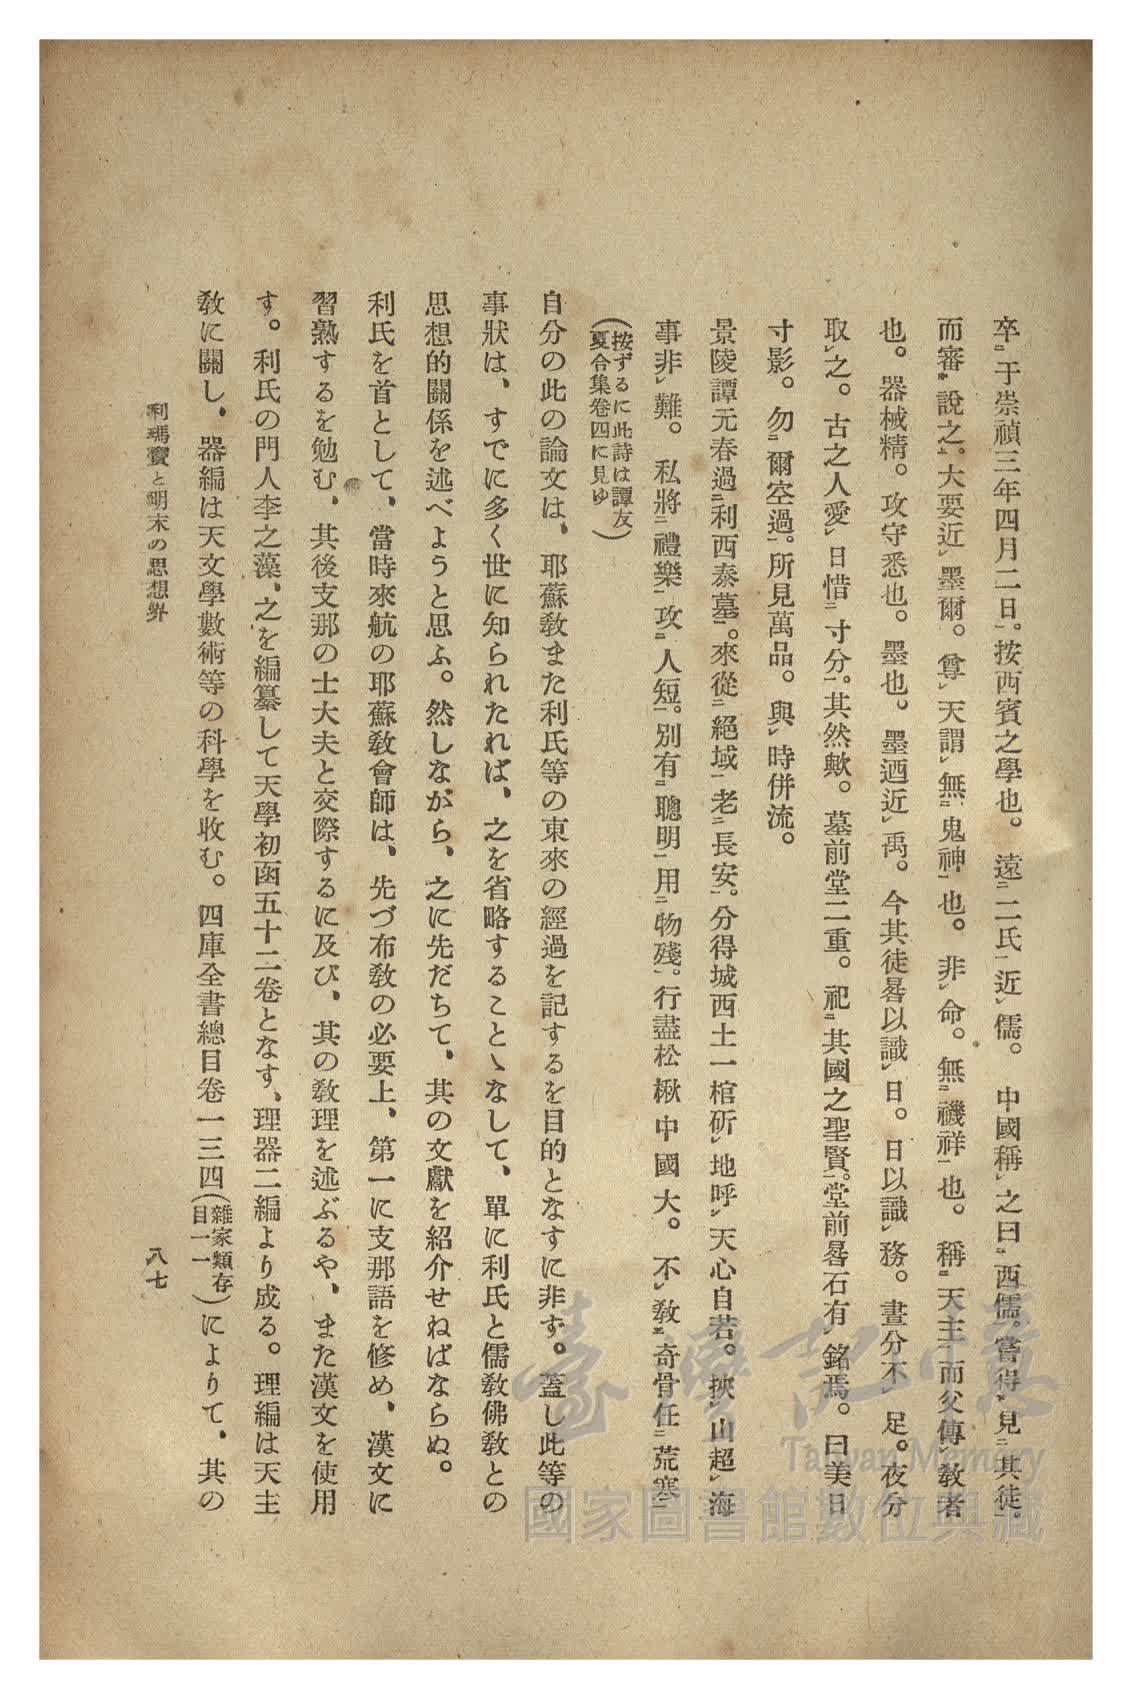 卒于崇禎三年四月二日。按西賓之學也。遠二氏近儒。中國稱之曰西儒。嘗得見其徒。
而審說之。大要近墨爾。尊天謂無鬼神也。非命。無禨祥也。稱天主而父傳教者
也。器械精。攻守悉也。墨也。墨迺近禹。今其徒晷以識日。日以識務。晝分不足。夜分
取之。古之人愛日惜寸分。其然歟。墓前堂二重。祀其國之聖賢。堂前晷石有銘焉。曰美日
寸影。勿爾空過。所見萬品。與時併流。
景陵譚元春過利西泰墓。來從絕域老長安。分得城西土一棺斫地呼天心自若。挾山超海
事非難。私將禮樂攻人短。別有聰明用物殘。行盡松楸中國大。不教奇骨任荒寒
(按ずるに此詩は譚友
夏合集卷四に見ゆ)
自分の此の論文は、耶蘇教また利氏等の東來の經過を記するを目的となすに非ず。蓋し此等の
事狀は、すでに多く世に知られたれば、之を省略することゝなして、單に利氏と儒教佛教との
思想的關係を述べようと思ふ。然しながら、之に先だちて、其の文獻を紹介せねばならぬ。
利氏を首として、當時來航の耶蘇教會師は、先づ布教の必要上、第一に支那語を修め、漢文に
習熟するを勉む、其後支那の士大夫と交際するに及び、其の教理を述ぶるや、また漢文を使用
す。利氏の門人李之藻、之を編纂して天學初函五十二卷となす、理器二編より成る。理編は天主
教に關し、器編は天文學數術等の科學を收む。四庫全書總目卷一三四(雜家類存目一一)によりて、其の
利瑪竇と明末の思想界
八七
臺灣記憶
Taiwan Memory
國家圖書館數位典藏